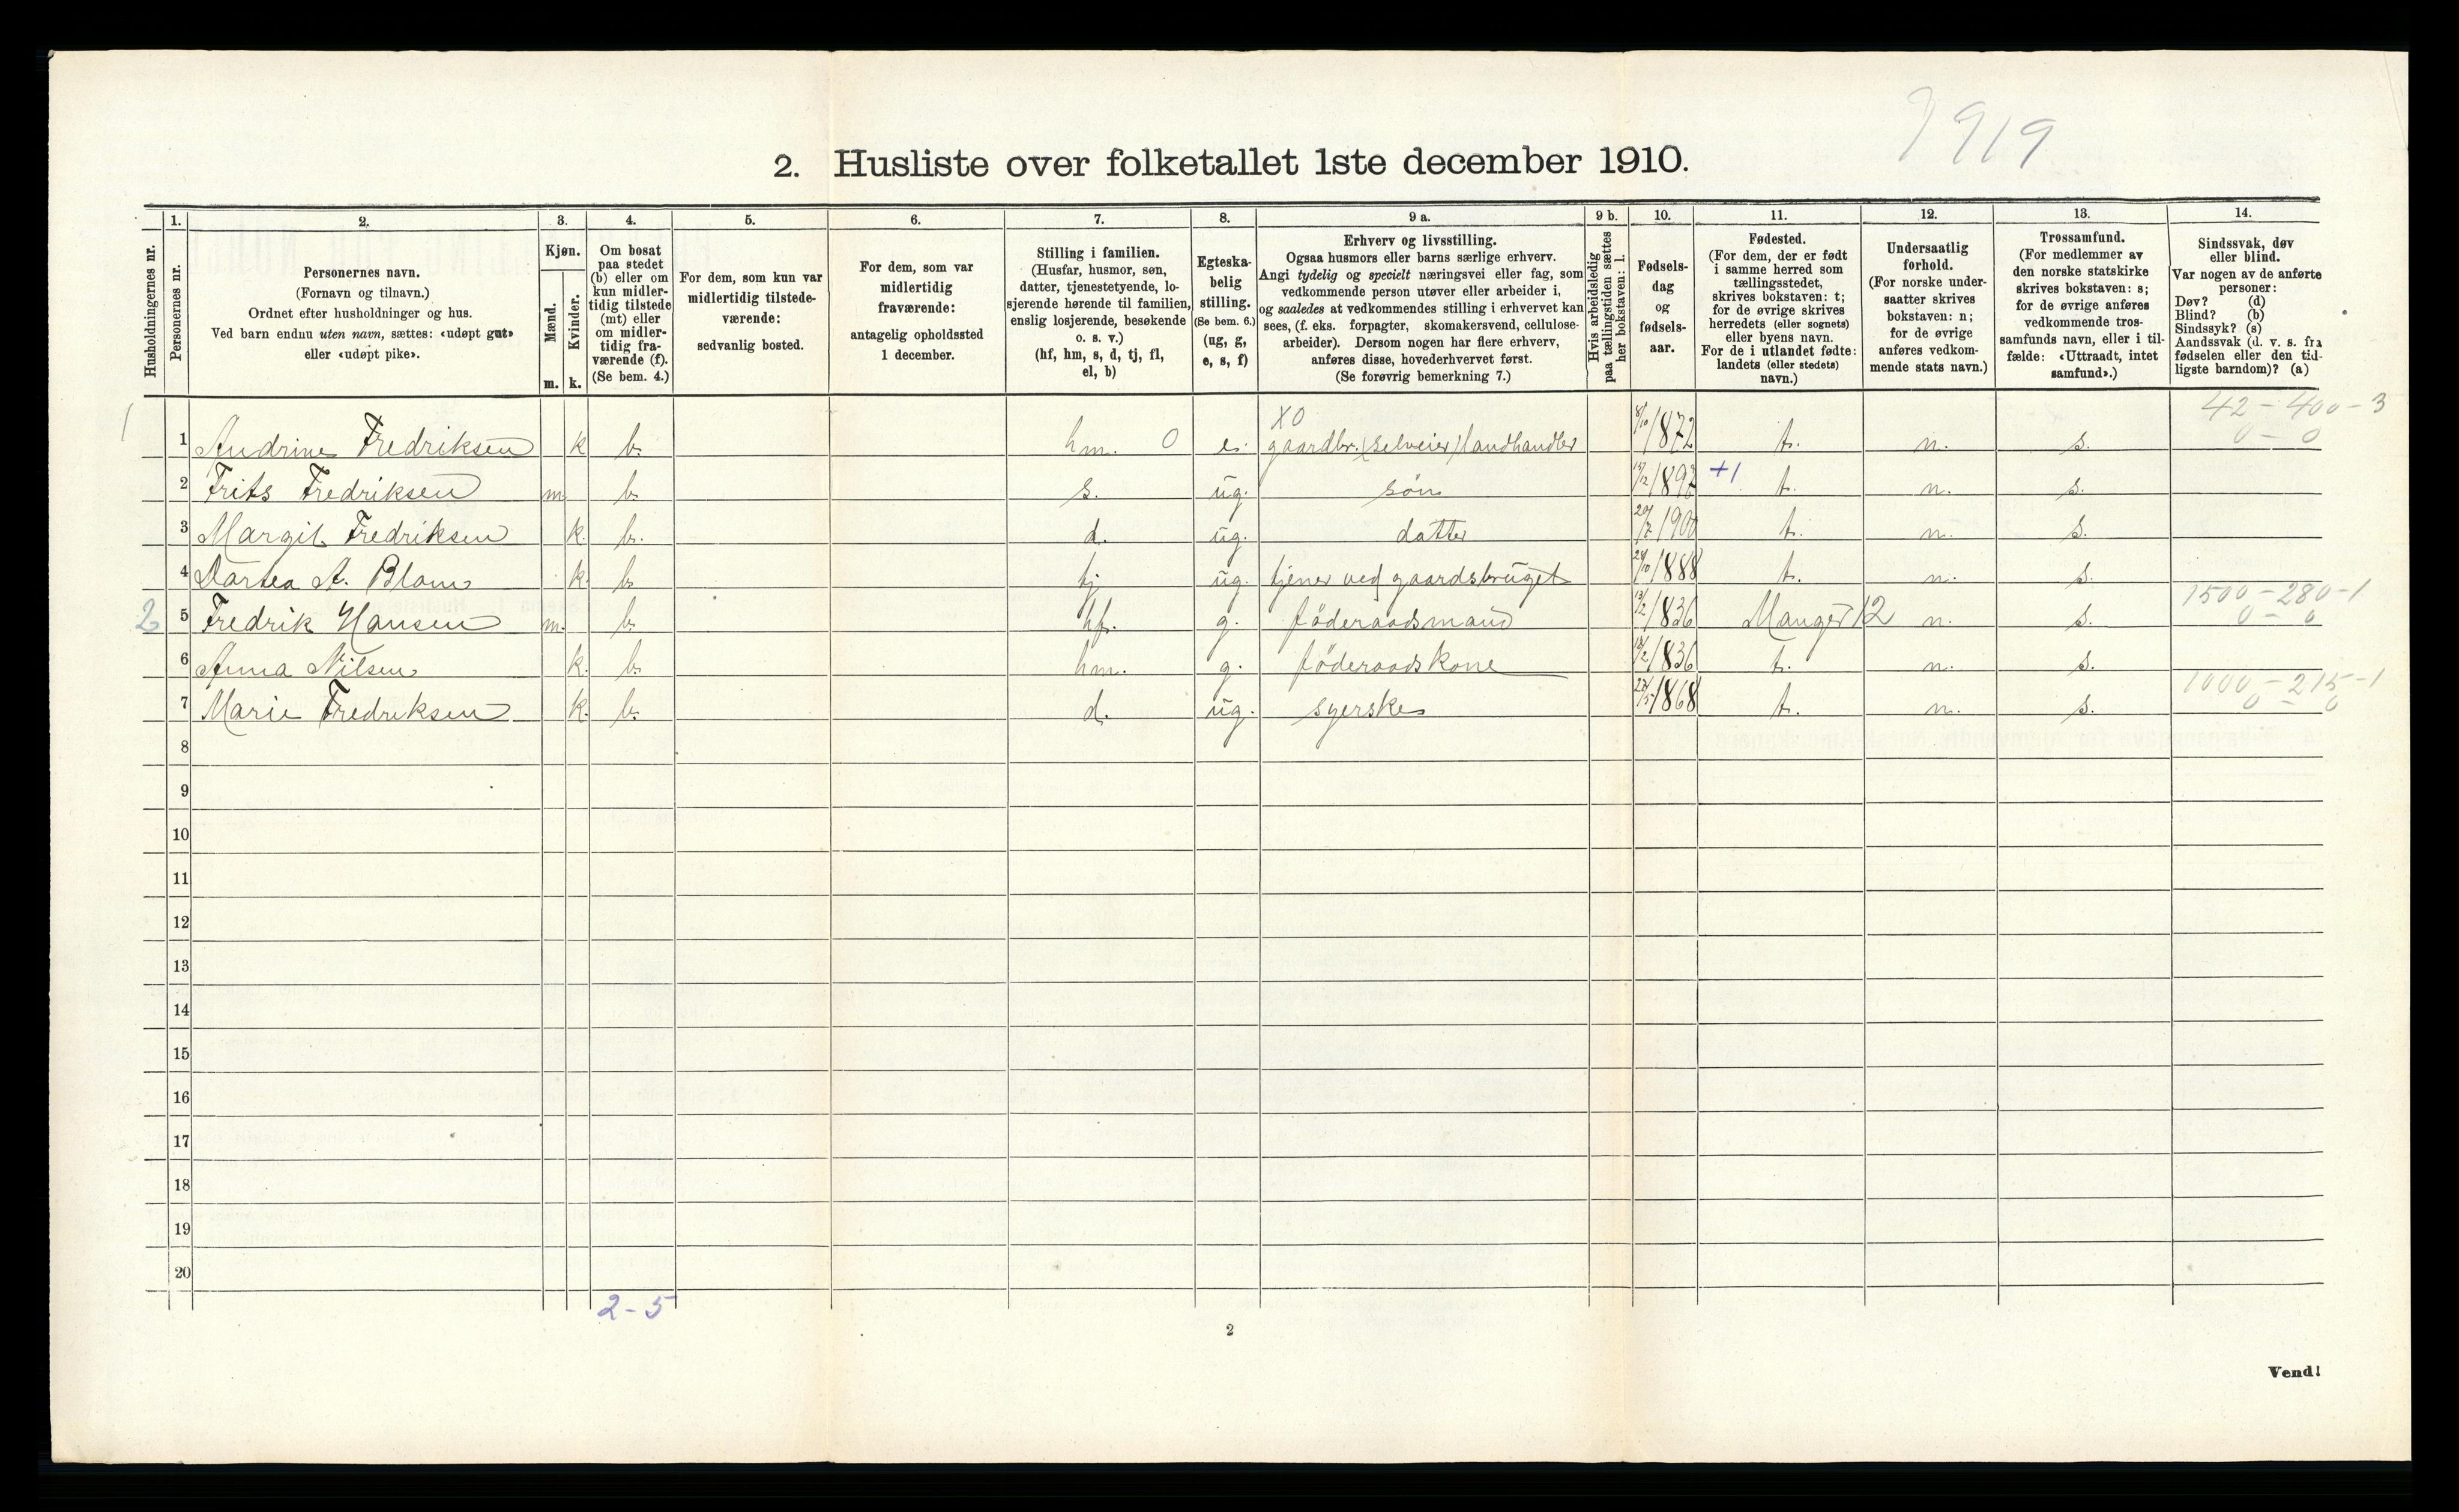 7919
2. Husliste over folketallet 1ste december 1910.
Husholdningernes nr.
1. Personernes nr.
2. Personernes navn.
(Fornavn og tilnavn.)
Ordnet efter husholdninger og hus.
Ved barn endnu uten navn, sættes: «udøpt gut»
eller «udøpt pike».
3. Kjøn.
Mænd. m.
Kvinder. k.
4. Om bosat
paa stedet
(b) eller om
kun midler-
tidig tilstede
(mt) eller
om midler-
tidig fra-
værende (f).
(Se bem. 4.)
5. For dem, som kun var
midlertidig tilstede-
værende:
sedvanlig bosted.
6. For dem, som var
midlertidig
fraværende:
antagelig opholdssted
1 december.
7. Stilling i familien.
(Husfar, husmor, søn,
datter, tjenestetyende, lo-
sjerende hørende til familien,
enslig losjerende, besøkende
o. s. v.)
(hf, hm, s, d, tj, fl,
el, b)
8. Egteska-
belig
stilling.
(Se bem. 6.)
(ug, g,
e, s, f)
9 a. Erhverv og livsstilling.
Ogsaa husmors eller barns særlige erhverv.
Angi tydelig og specielt næringsvei eller fag, som
vedkommende person utøver eller arbeider i,
og saaledes at vedkommendes stilling i erhvervet kan
sees, (f. eks. forpagter, skomakersvend, cellulose-
arbeider). Dersom nogen har flere erhverv,
anføres disse, hovederhvervet først.
(Se forøvrig bemerkning 7.)
9 b. Hvis arbeidsledig
paa tællingstiden sættes
her bokstaven: l.
10. Fødsels-
dag
og
fødsels-
aar.
11. Fødested.
(For dem, der er født
i samme herred som
tællingsstedet,
skrives bokstaven: t;
for de øvrige skrives
herredets (eller sognets)
eller byens navn.
For de i utlandet fødte:
landets (eller stedets)
navn.)
12. Undersaatlig
forhold.
(For norske under-
saatter skrives
bokstaven: n;
for de øvrige
anføres vedkom-
mende stats navn.)
13. Trossamfund.
(For medlemmer av
den norske statskirke
skrives bokstaven: s;
for de øvrige anføres
vedkommende tros-
samfunds navn, eller i til-
fælde: «Uttraadt, intet
samfund».)
14. Sindssvak, døv
eller blind.
Var nogen av de anførte
personer:
Døv? (d)
Blind? (b)
Sindssyk? (s)
Aandssvak (d. v. s. fra
fødselen eller den tid-
ligste barndom)? (a)
XO 42 - 400 - 3
1 1 Andrine Fredriksen k b. hm. 0 e. gaardbr. (selveier) landhandler 8/10 1872 t. n. s. 0 - 0
2 Frits Fredriksen m b. s. ug. søn 1892 +1 t. n. s.
3 Margit Fredriksen k. b. d. ug. datter 1900 t. n. s.
4 Dartea A. Blom k. b. tj ug. tjener ved gaardsbruget 1888 t. n. s.
1500 - 280 - 1
2 5 Fredrik Hansen m. b. hf. g. føderaadsmand 13/2 1836 Manger 12 n. s. 0 - 0
6 Anna Nilsen k. b. hm. g. føderaadskone 1836 t. n. s.
1000 - 215 - 1
7 Marie Fredriksen k. b. d. ug. syerske 1868 t. n. s. 0 - 0
8
9
10
11
12
13
14
15
16
17
18
19
20
2 - 5
2
Vend!